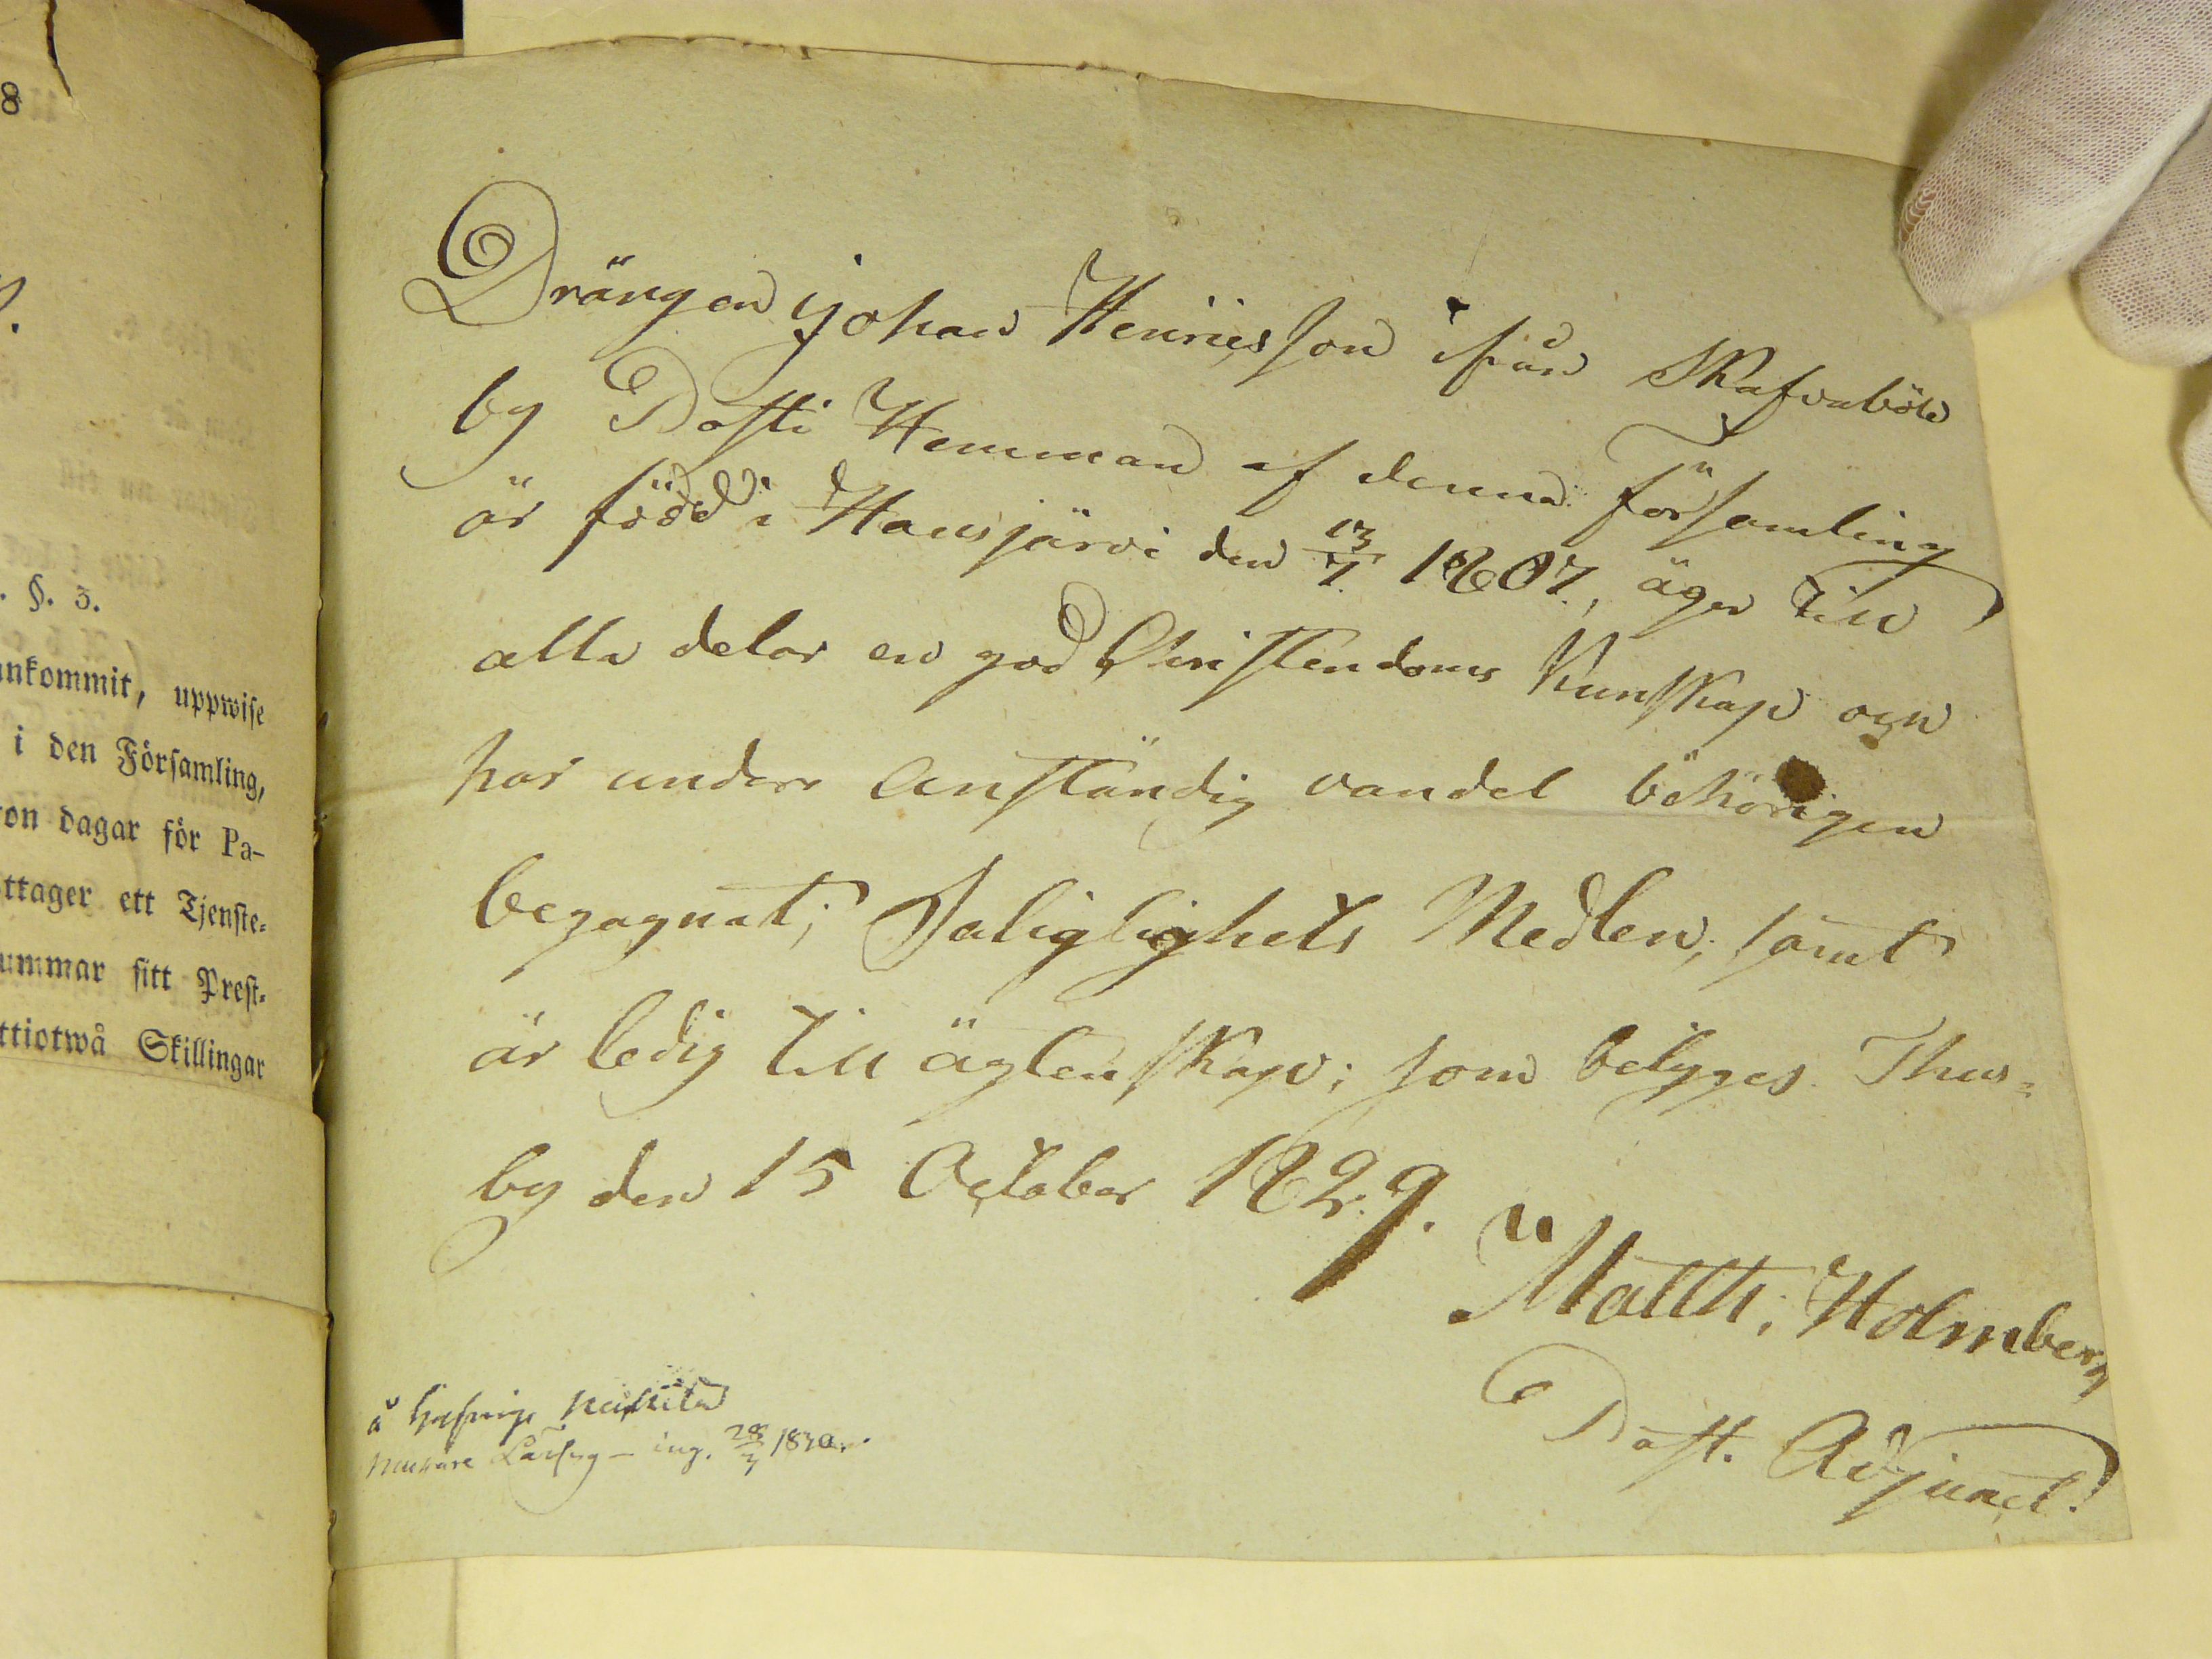 8
. §. 3.
ankommit, uppwise
i den Församling,
ton dagar för Pa-
ttager ett Tjenste-
ummar sitt Prest-
ttiotwå Skillingar
Drängen Johan Henricsson ifrån Skafvaböle
by Dosti Hemman af denna Församling
är född i Hausjärvi den 13/7. 1807., äger till
alla delar en god Christendoms Kunskap och
har under anständig vandel behörigen
begagnat; Saliglighets Medlen; samt
är ledig till ägtenskap; som betyges. Thus=
by den 15 October 1829.
Matth. Holmberg
Past. Adjunct.
å
ing. 28/3 1830.